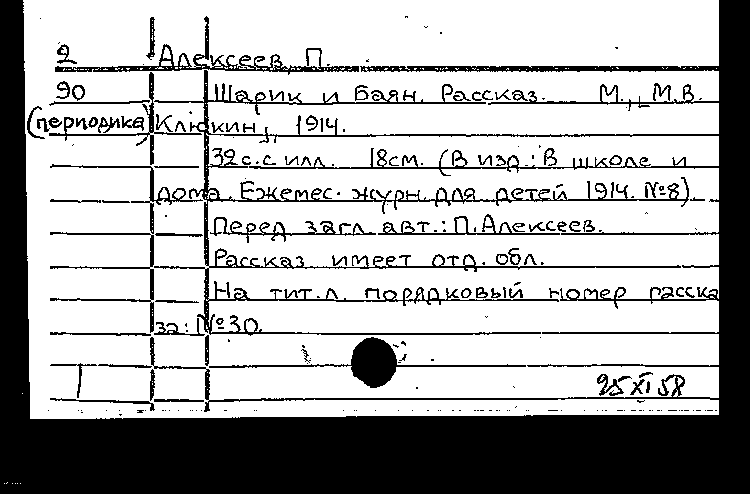 2 Алексеев, П.
90 Шарик и Баян. Рассказ. М., [М.В.
(периодика) Клюкин], 1914.
32с.с илл. 18см. (В изд.: В школе и
дома. Ежемес. журн. для детей 1914. №8).
Перед загл. авт.: П.Алексеев.
Рассказ имеет отд. обл.
На тит.л. порядковый номер расска
за: №30.
25 XI 58